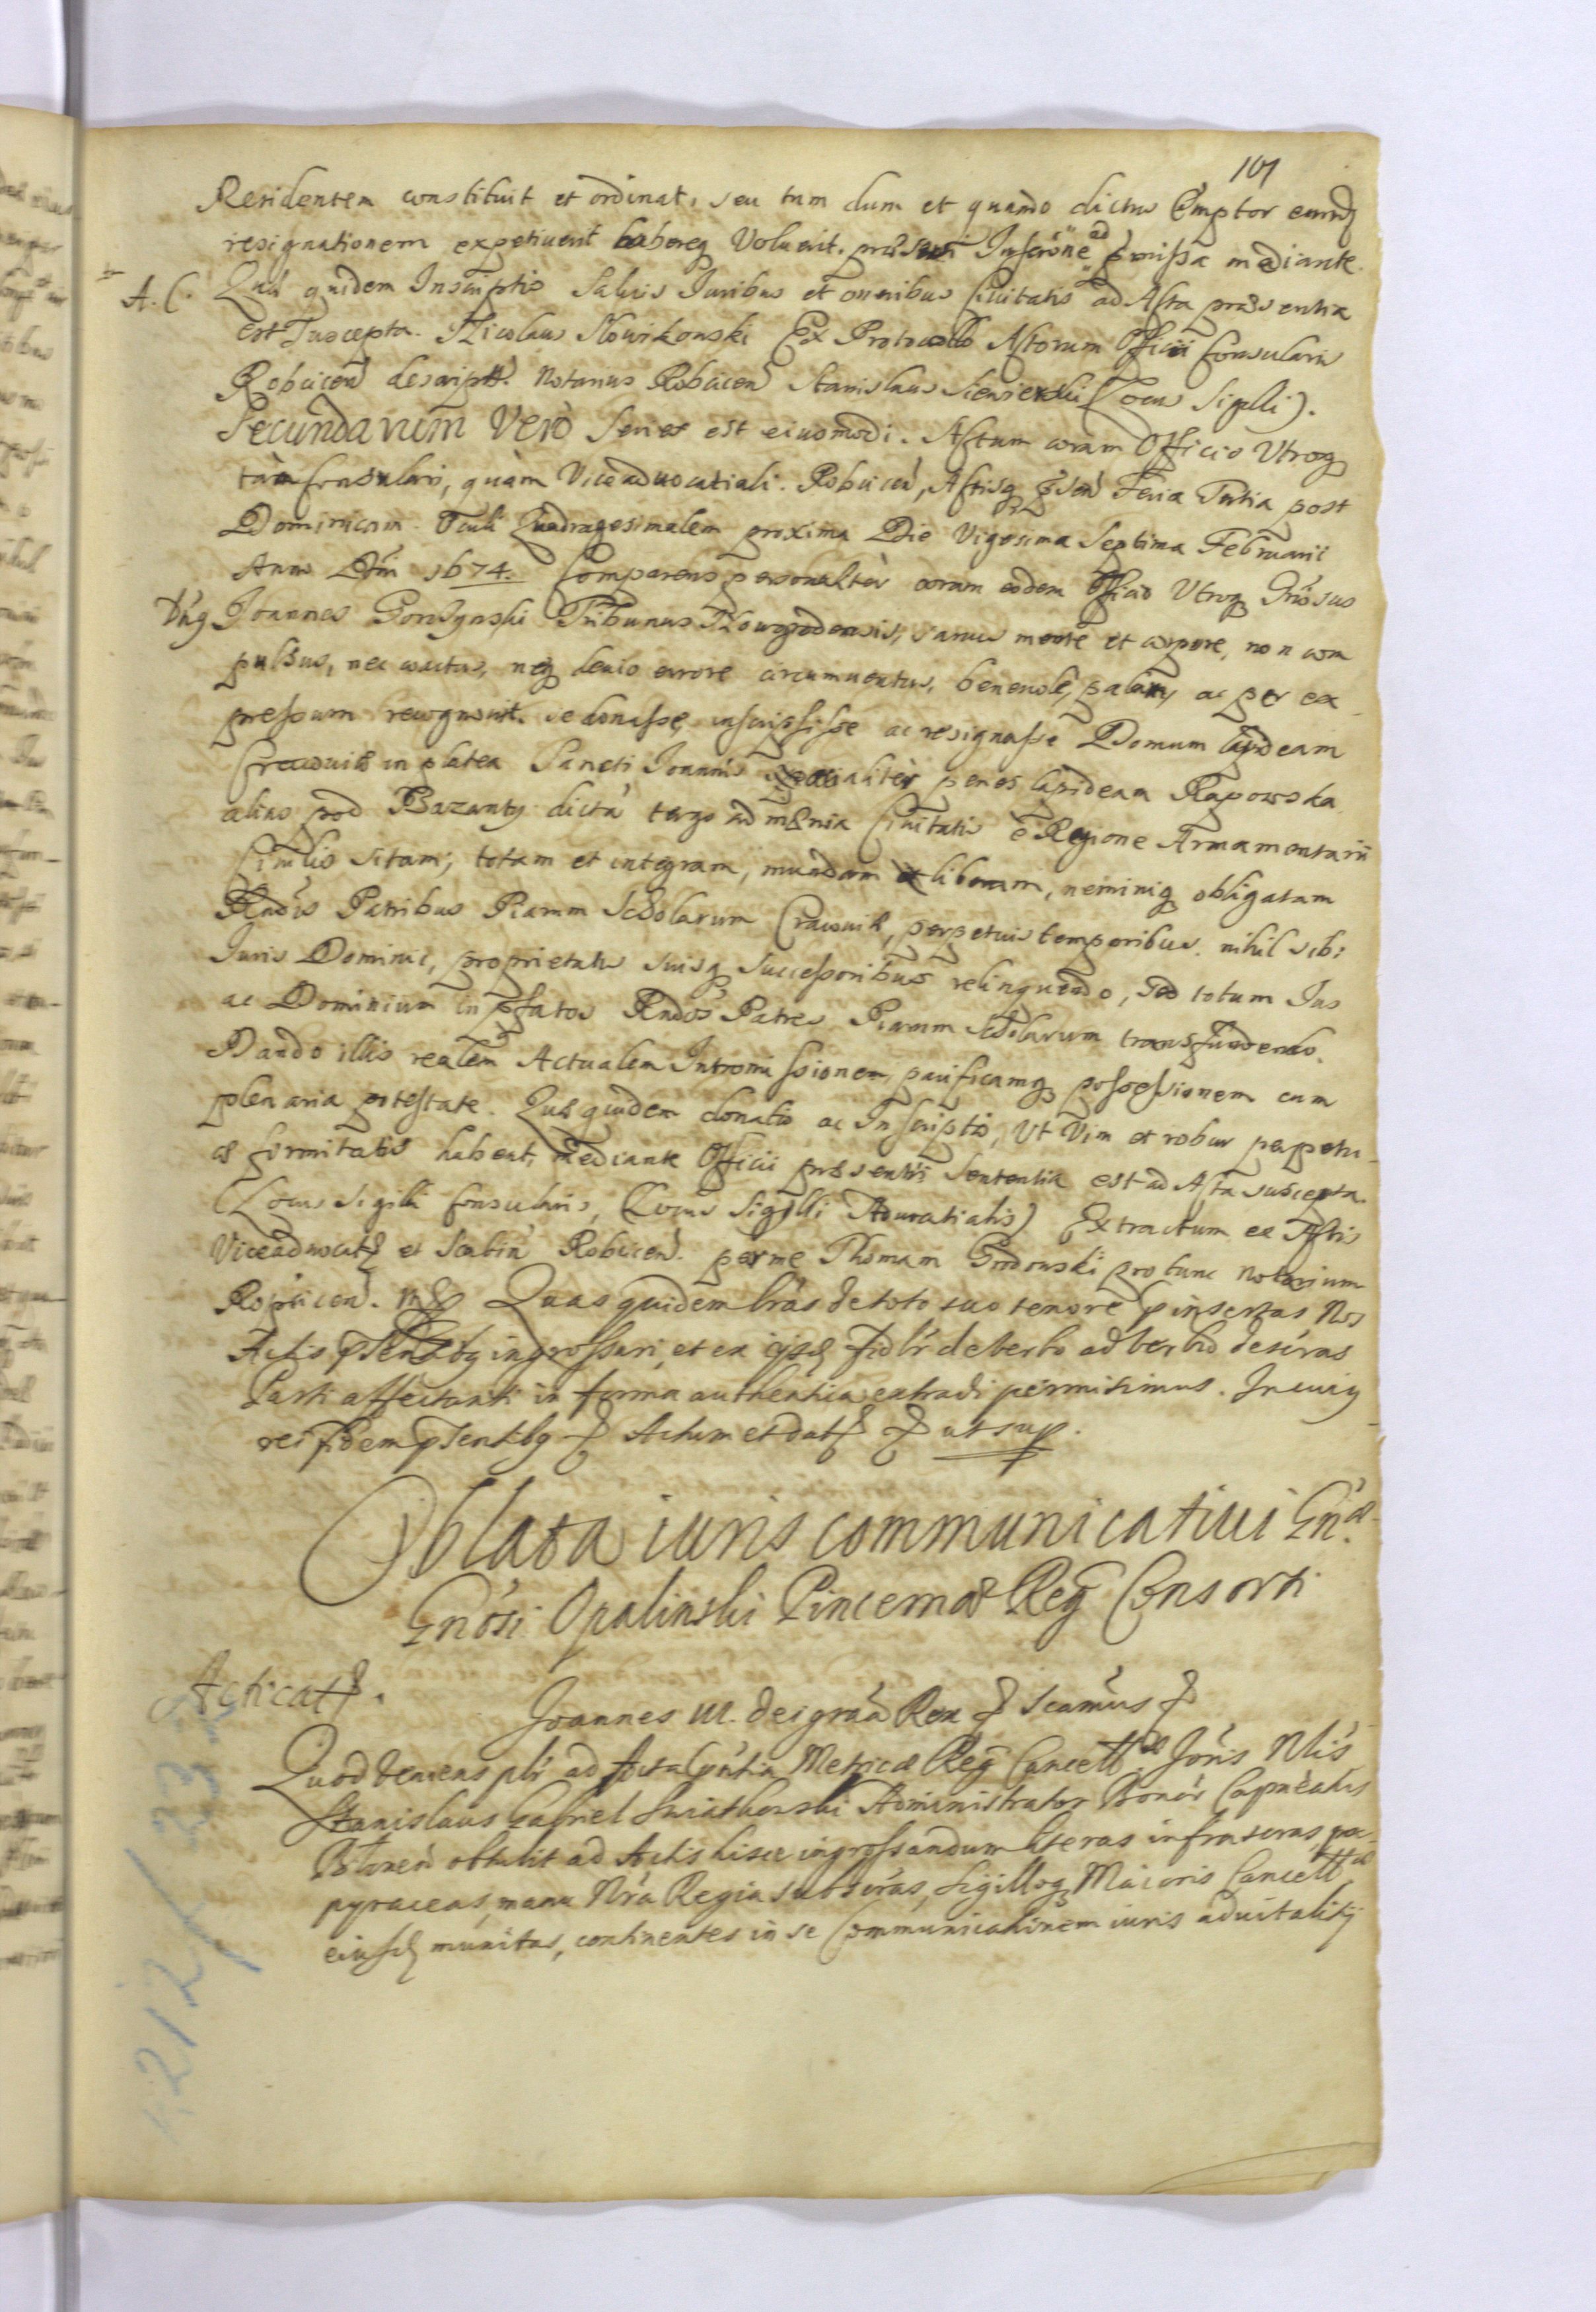 101
Residentem constituit et ordinat, seu tum dum et quando dictus Emptor eand
resignationem expetiuerit habereq Voluerit. præsenti Inscrione ad præmissa mediante.
A. C. Quæ quidem Inscriptio Saluis Iuribus et oneribus Ciuitatis ad Acta præsentia
est Suscepta. Nicolaus Nowikonski Ex Protocollo Actorum Officii Consularis
Robcicen descript. Notarius Robcicen Stanislaus Sieniewski (Locus Sigilli).
Secundarum Vero Series est eiusmodi. Actum coram Officio Utroq
tam Consulari, quam Viceaduocatiali. Robcicen, Actisq præsen Feria Tertia post
Dominicam Oculi Quadragesimalem proxima Die Vigesima Septima Februarii
Anno Dni 1674. Comparens personaliter coram eodem Officio Utroq Gnosus
Dng Joannes Gorczynski Tribunus Nowogrodensis, sanus mente et corpore, non com
pulsus, nec coactus, neq deuio errore circumuentus, beneuole, palam, ac per ex
pressum recognouit. se donasse, inscripsisse ac resignasse Domum lapideam
Cracouiæ in platea Sancti Joannis specialiter penes lapideam Rapowska
alias pod Bazanty dicta tergo ad mænia Ciuitatis e Regione Armamentarii
Ciuilis sitam, totam et integram, mundam et liberam, neminiq obligatam
Rndis Patribus Piarum Scholarum Cracouiæ, perpetuis temporibus. nihil sibi
Iuris Dominii, proprietatis suisq Successoribus relinquendo, sed totum Ius
ac Dominium in præfatos Rndos Patres Piarum Scholarum transfundendo.
Dando illis realem Actualem Intromissionem, pacificamq possessionem cum
plenaria potestate. Quæ quidem donatio ac Inscriptio, Ut Vim et robur perpetu
æ firmitatis habeat, mediante Officii præsentis Sententia est ad Acta suscepta.
(Locus Sigilli Consularis, (Locus Sigilli Aduocatialis) Extractum ex Actis
Viceaduocat et Scabin Robcicen. per me Thomam Grodowski pro tunc Notarium
Ropcicen. mp Quas quidem lras de toto suo tenore pinsertas Nos
Actis psentibg ingrossari, et ex ijsd fidlr de verbo ad verbu descras
Parti affectanti in forma authentica extradi permisimus. In cuig
rei fidem psentibg & Actum et dat & ut sup.
Oblata iuris communicatiui Gnæ.
Gnosi Opalinski Pincernæ Reg Consorti
Acticat.
Joannes III. Dei graa Rex & Scamus &
Quod veniens plr ad Acta psntia Metricæ Reg Cancellæ Joris Nlis
Stanislaus Gabriel Swiatkowski Administrator Bonor Capnealis
obtulit ad Actis hisce ingrossandum literas infrascras pa
pyraceas, manu Nra Regia subscras, Sigilloq Maioris Cancellæ
eiusd munitas, continentes in se Communicationem iuris aduitalitij